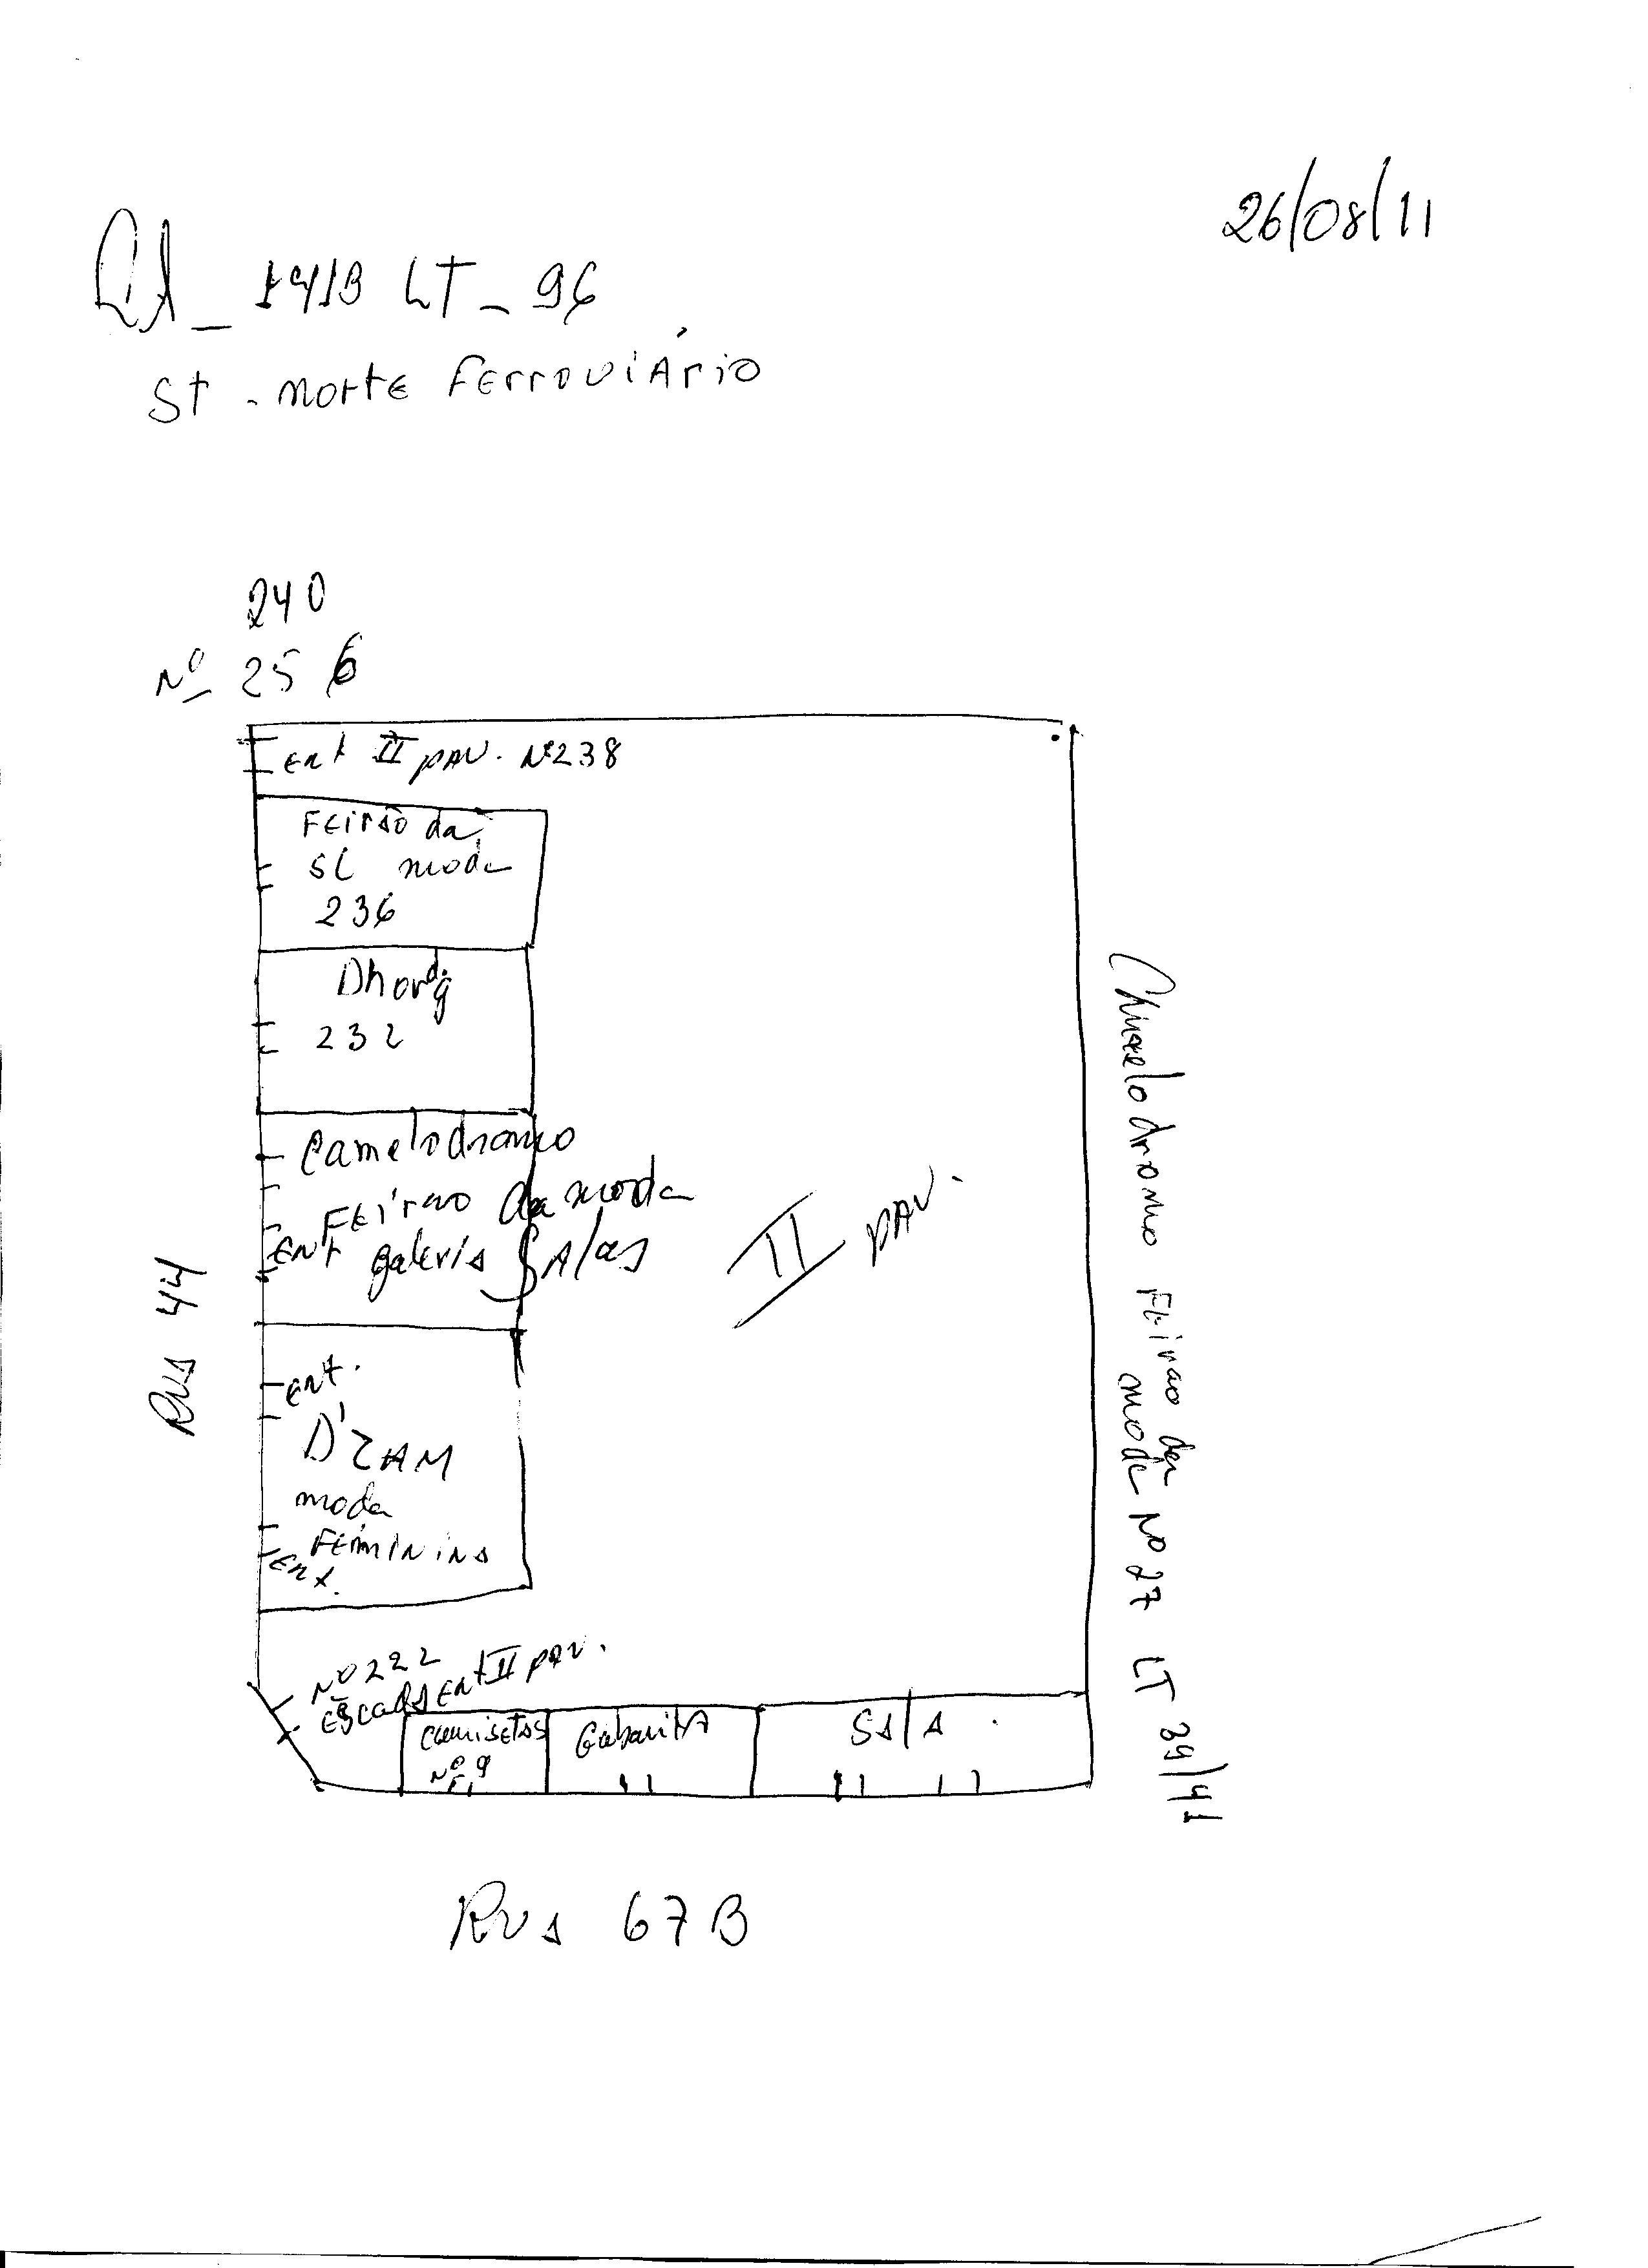 26/08/11
LT _ 96
St - norte FErroviÁrio
240
Nº 256
Ent II pAV. Nº238
FEirão da
SL moda
236
232
Camelodromo
FEirao da moda
Ent galeria SAlas
II pAV.
Rua 44
ent.
D'ZAM
moda
FEMININA
Ent.
Nº 222
Escada Ent II pAV.
Camisetas
Nº 9
Gabarita
SAlA
Camelodromo FEirao da
moda Nº 27 LT 39/41
Rua 67B